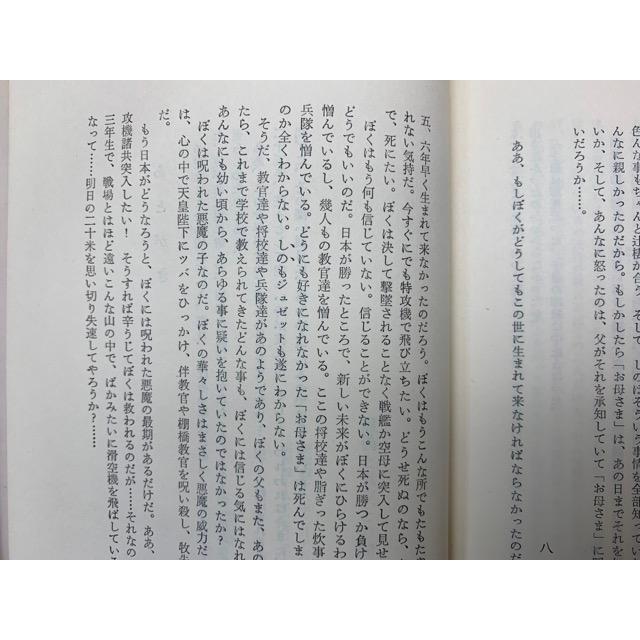 色んな事もちゃんと辻褄が合う。そして、しのはそういう事情を全部知ってい
なに親しかったのだから。もしかしたら「お母さま」は、あの日までそれを
いか、そして、あんなに怒ったのは、父がそれを承知していて「お母さま」に
いだろうか……。
八
ああ、もしぼくがどうしてもこの世に生まれて来なければならなかったのだ
五、六年早く生まれて来なかったのだろう。ぼくはもうこんな所でもたもた
れない気持だ。今すぐにでも特攻機で飛び立ちたい。どうせ死ぬのなら、
で、死にたい。ぼくは決して撃墜されることなく戦艦か空母に突入して見せ
ぼくはもう何も信じていない。信じることができない。日本が勝つか負け
どうでもいいのだ。日本が勝ったところで、新しい未来がぼくにひらけるわ
憎んでいるし、幾人もの教官達を憎んでいる。ここの将校達や脂ぎった炊事
兵隊を憎んでいる。どうにも好きになれなかった「お母さま」は死んでしま
のか全くわからない。しのもジュゼットも遂にわからない。
そうだ、教官達や将校達や兵隊達があのようであり、ぼくの父もまた、あの
たら、これまで学校で教えられてきたどんな事も、ぼくには信じる気にはなれ
あんなにも幼い頃から、あらゆる事に疑いを抱いていたのではなかったか？
ぼくは呪われた悪魔の子なのだ。ぼくの華々しさはまさしく悪魔の威力だ
は、心の中で天皇陛下にツバをひっかけ、伴教官や棚橋教官を呪い殺し、牧
だ。
もう日本がどうなろうと、ぼくには呪われた悪魔の最期があるだけだ。ああ、
攻機諸共突入したい！　そうすれば辛うじてぼくは救われるのだが……それなの
三年生で、戦場とはほど遠いこんな山の中で、ばかみたいに滑空機を飛ばしている
なって……明日の二十米を思い切り失速してやろうか？……